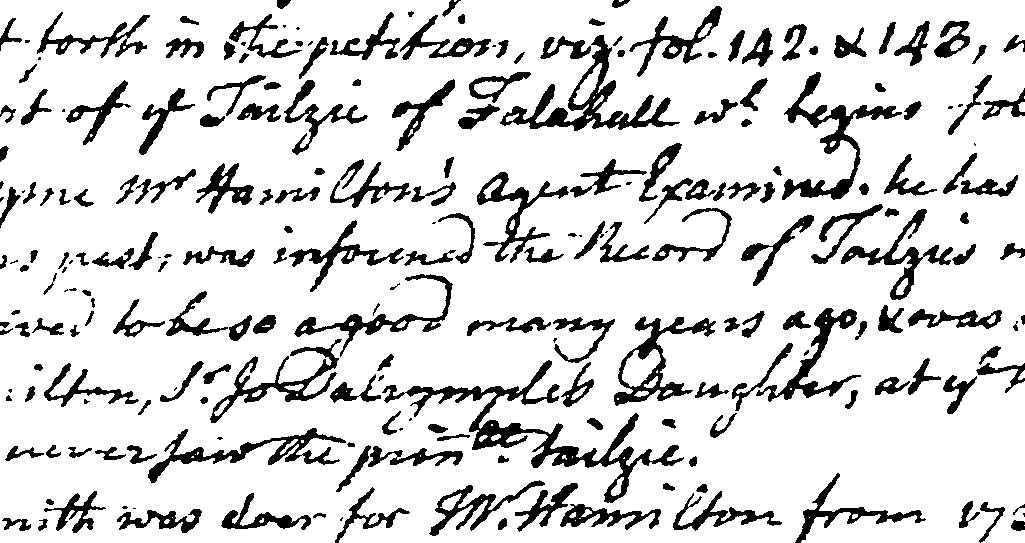 t forth in the petition, viz. fol. 142. & 143,
rt of ye Tailzie of Falahall wh. begins fol
yme Mr Hamilton's Agent Examined. he has
rs. past, was informed the Record of Tailzies
ived to be so a good many years ago, & was
ilton, Sr. Jo Dalrymples Daughter, at yt
never saw the prinall. tailzie.
mith was doer for Mr. Hamilton from 173